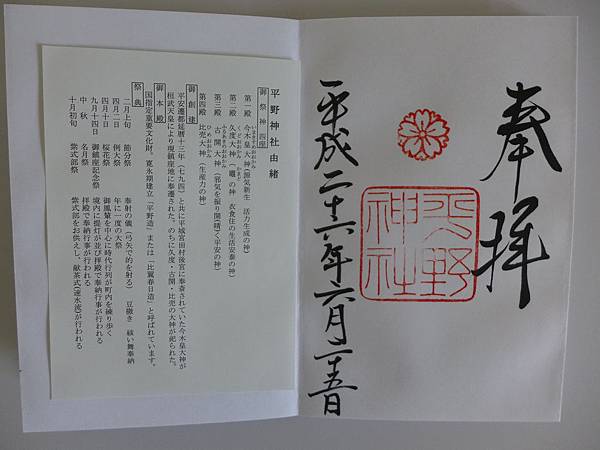 奉拝
平野神社
平成二十六年六月二十五日
平野神社由緒
御祭神四座
第一殿 今木皇大神(源気新生 活力生成の神)
第二殿 久度大神(竈の神 衣食住の生活安泰の神)
第三殿 古開大神(邪気を振り開(晴)く平安の神)
第四殿 比売大神(生産力の神)
御創建
平安遷都延暦十三年(七九四)と共に平城宮田村後宮に奉斎されていた今木皇大神が
桓武天皇により現鎮座地に奉遷された。のちに久度・古開・比売の大神が祀られた。
御本殿
国指定重要文化財。寛永期建立「平野造」または「比翼春日造」と呼ばれています。
祭典
二月上旬 節分祭 奉射の儀(弓矢で的を射る) 豆撒き 祓い舞奉納
四月二日 例大祭 年に一度の大祭
四月十日 桜花祭 御鳳輦を中心に時代行列が町内を練り歩く
九月十四日 御鎮座記念祭 境内に提灯が並び拝殿で奉納行事が行われる
中秋 名月祭 拝殿で奉納行事が行われる
十月初旬 紫式部祭 紫式部をお供えし、献茶式(速水流)が行われる